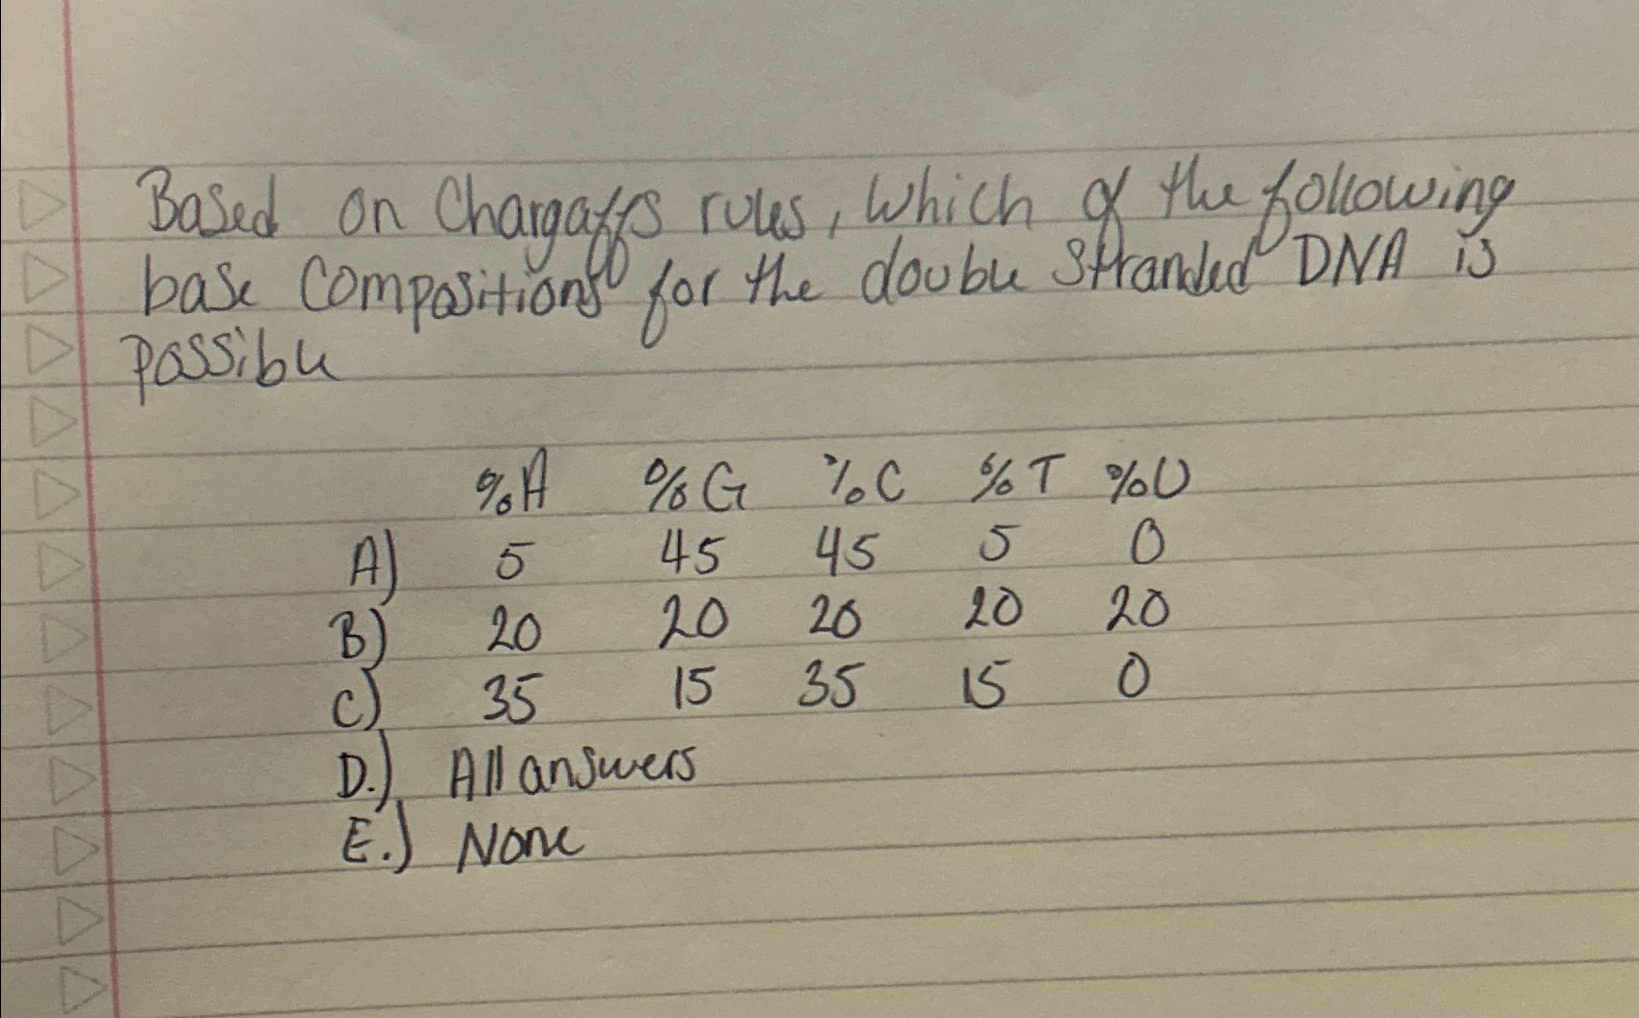 Based on Chargaffs rules, Which of the following
base Compositions for the double Stranded DNA is
possible
%A %G %C %T %U
A) 5 45 45 5 0
B) 20 20 20 20 20
C) 35 15 35 15 0
D.) All answers
E.) None